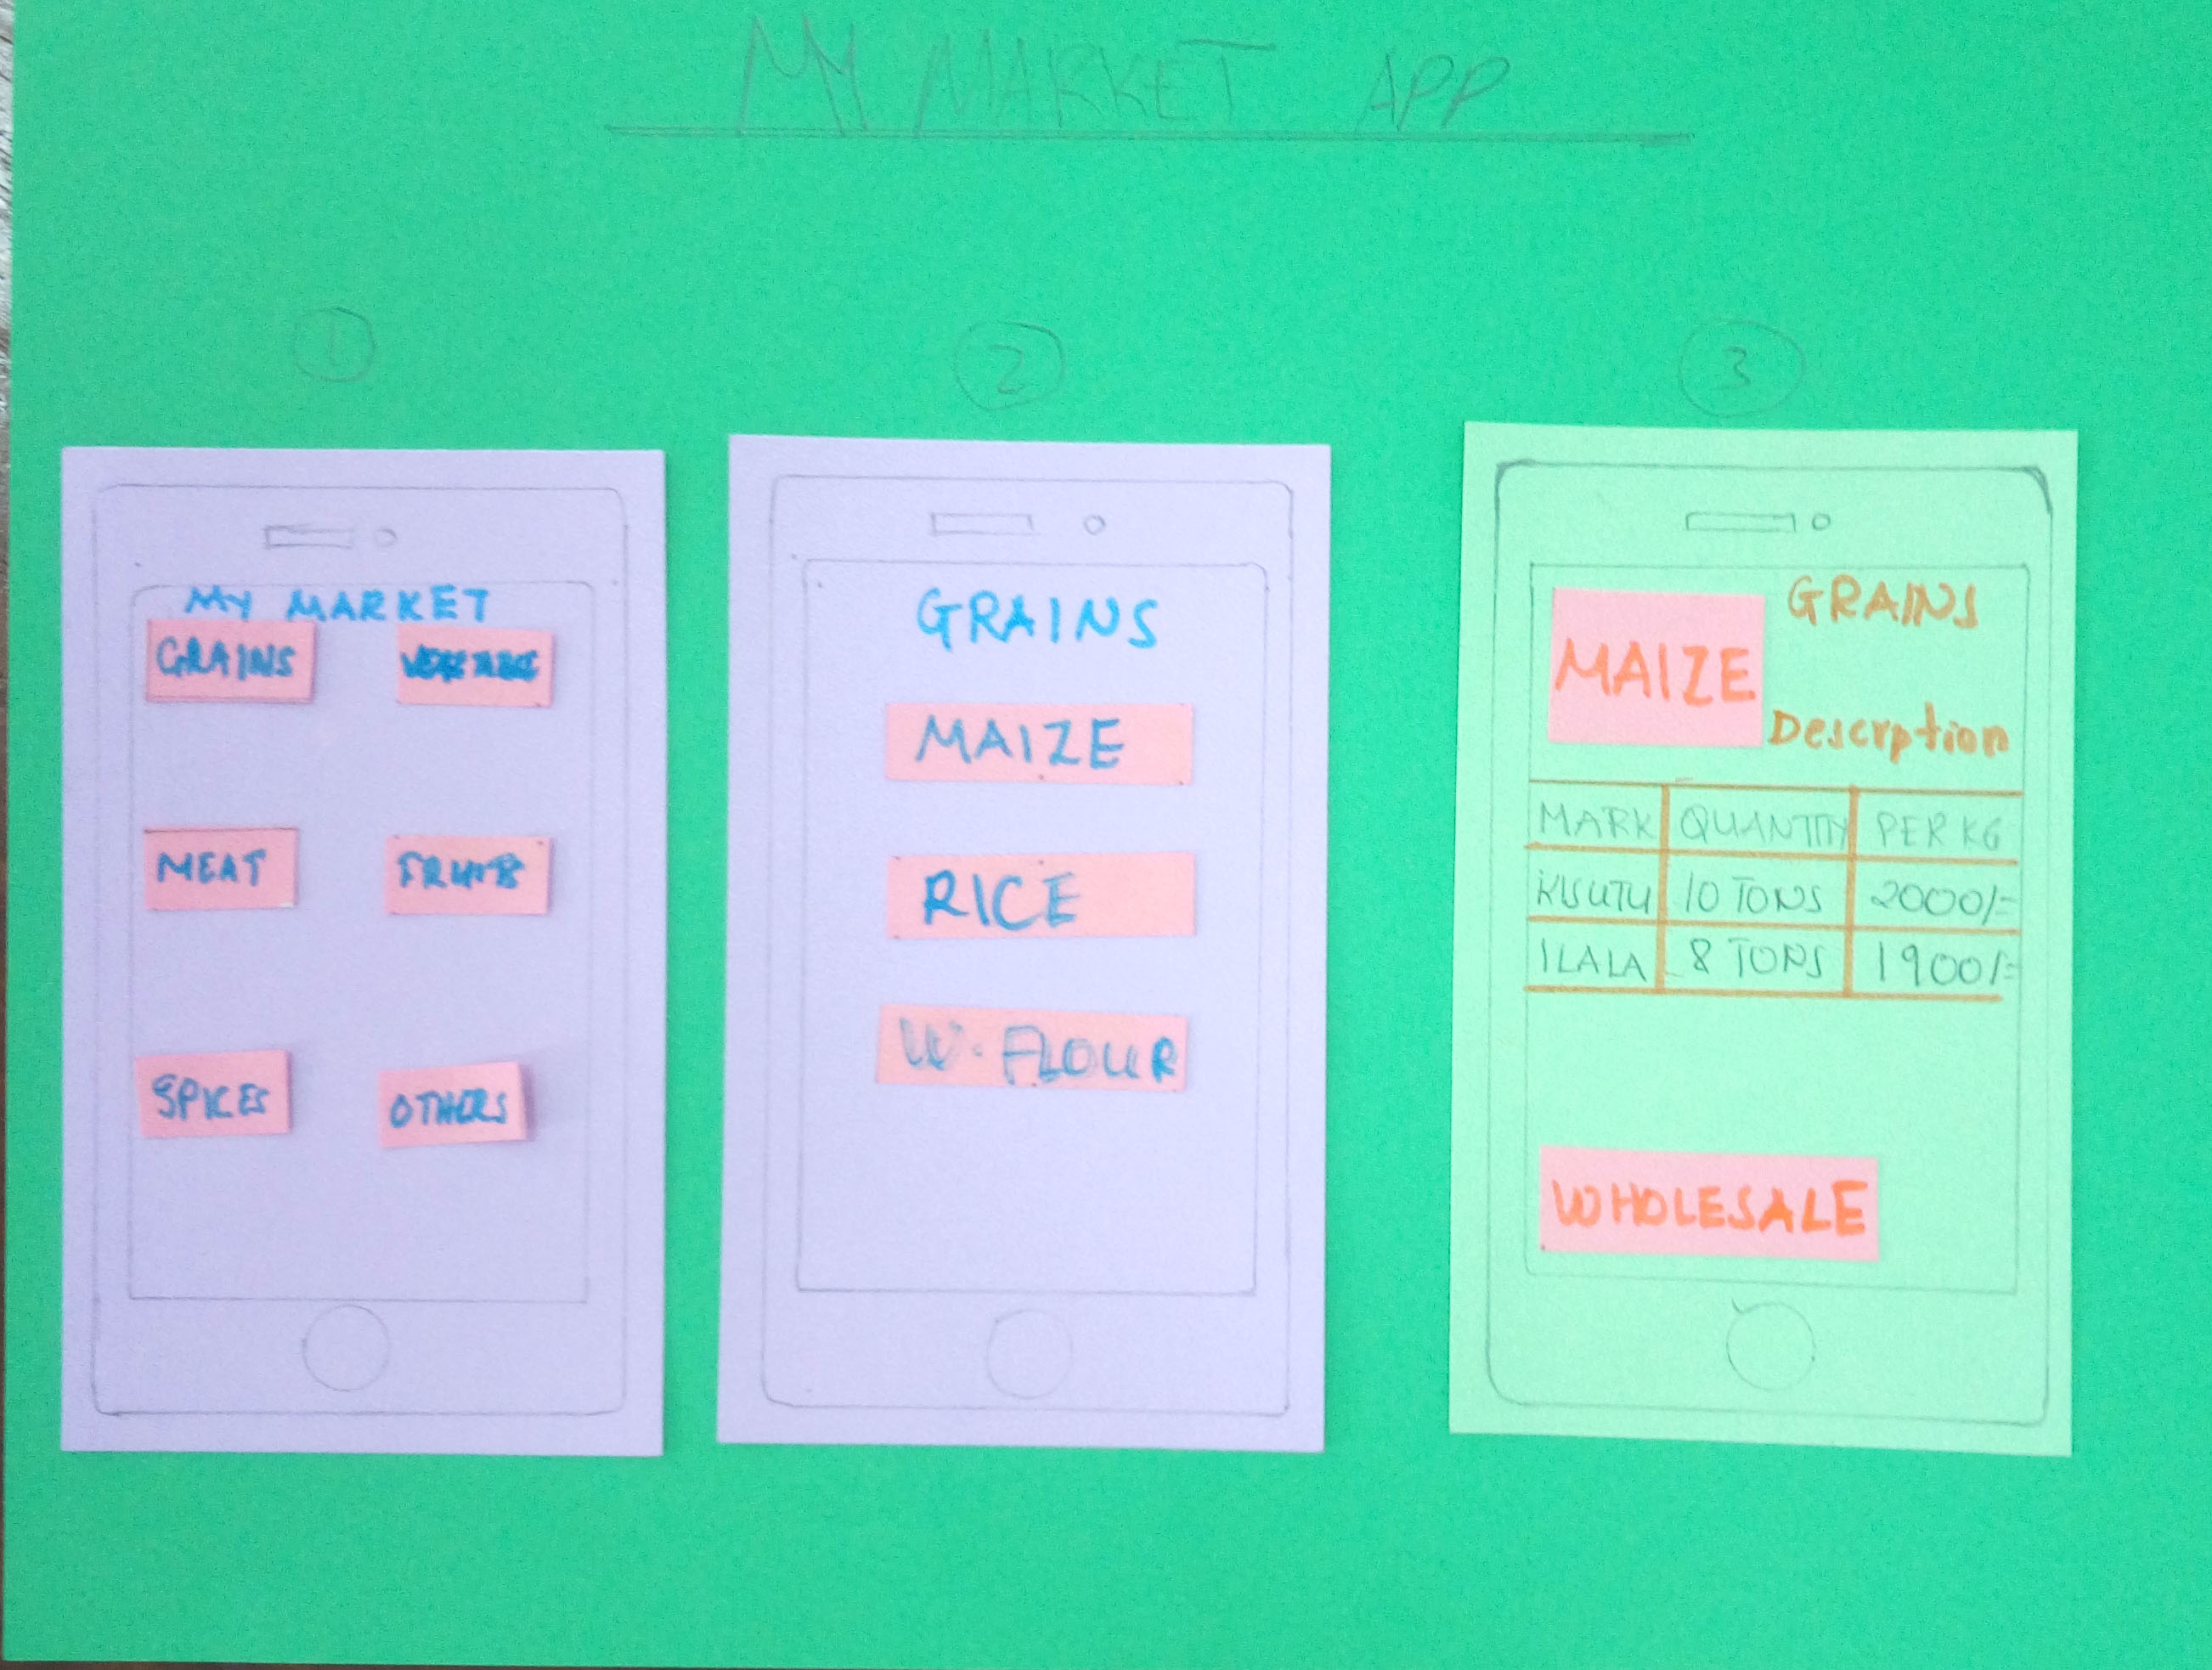 MY MARKET APP
1
2
3
MY MARKET
GRAINS
VEGETABLE
MEAT
FRUITS
SPICES
OTHERS
GRAINS
MAIZE
RICE
W. FLOUR
MAIZE
GRAINS
Descrption
MARK QUANTITY PER KG
KISUTU 10 TONS 2000/=
ILALA 8 TONS 1900/=
WHOLESALE